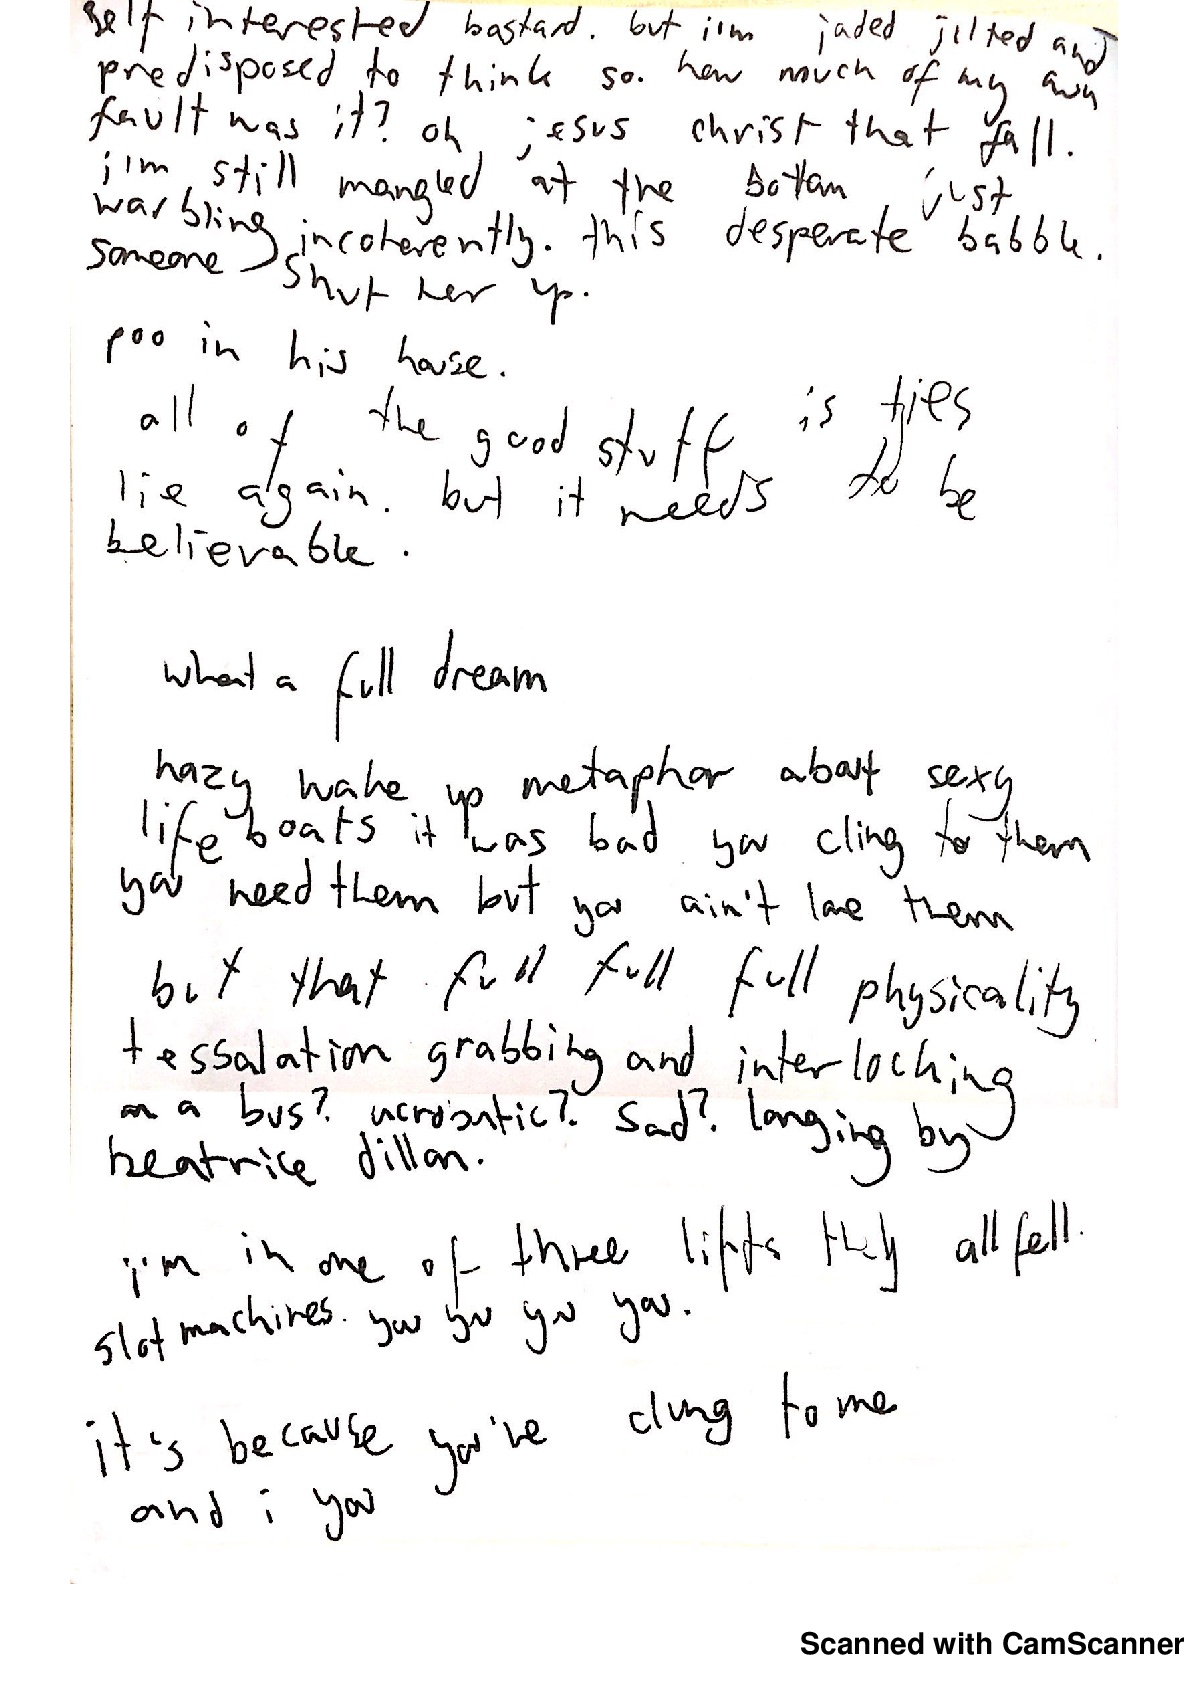 self interested bastard. but i'm jaded jilted and
predisposed to think so. how much of my own
fault was it? oh jesus christ that fall.
i'm still mangled at the bottom just
warbling incoherently. this desperate babble.
someone shut her up.
poo in his house.
all of the good stuff is
lie again. but it needs to be
believable.
what a full dream
hazy wake up metaphor about sexy
life boats it was bad you cling to them
you need them but you ain't love them
but that full full full physicality
tessalation grabbing and interlocking
on a bus? acrobatic? sad? longing by
beatrice dillon.
i'm in one of three lifts they all fell.
slot machines. you you you you.
it's because you've clung to me
and i you
Scanned with CamScanner